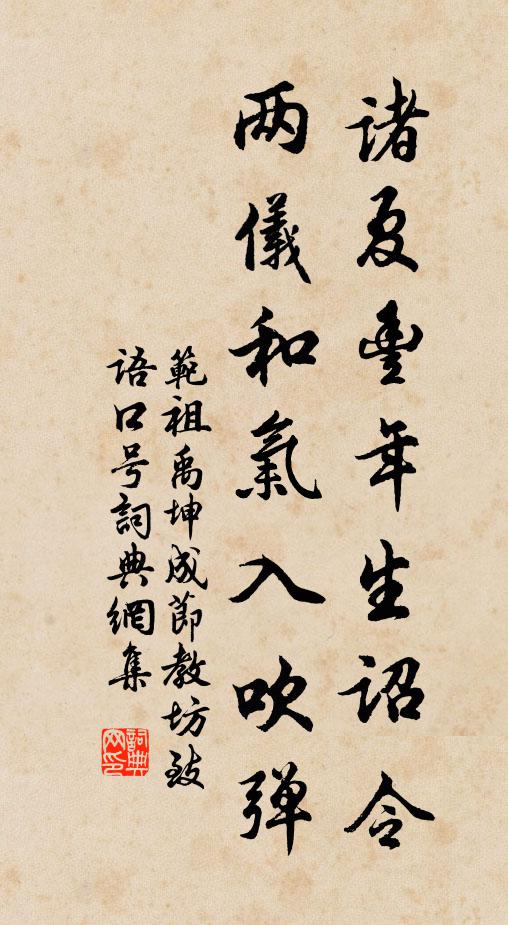 諸夏豐年生詔令
两儀和氣入吹弾
範祖禹坤成節教坊致
語口号詞典網集
詞典网印